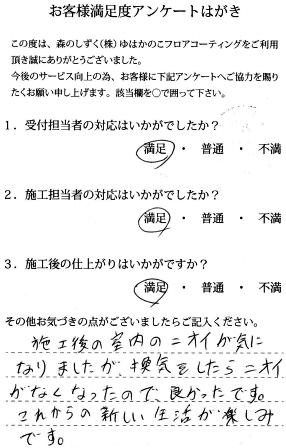 お客様満足度アンケートはがき
この度は、森のしずく(株)ゆはかのこフロアコーティングをご利用
頂き誠にありがとうございました。
今後のサービス向上の為、お客様に下記アンケートへご協力を賜り
たくお願い申し上げます。該当欄を○で囲って下さい。
1．受付担当者の対応はいかがでしたか？
満足 ・ 普通 ・ 不満
2．施工担当者の対応はいかがでしたか？
満足 ・ 普通 ・ 不満
3．施工後の仕上がりはいかがですか？
満足 ・ 普通 ・ 不満
その他お気づきの点がございましたらご記入ください。
施工後の室内のニオイが気に
なりましたが、換気をしたらニオイ
がなくなったので、良かったです。
これからの新しい生活が楽しみ
です。